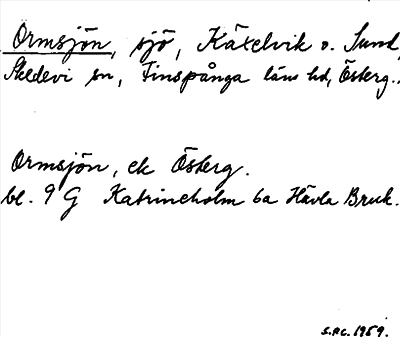 Ormsjön, sjö, Käxelvik o. Sund,
Skedevi sn, Finspånga läns hd, Österg..
Ormsjön, ek Österg.
bl. 9 G Katrineholm 6a Hävla Bruk.
S.P.C. 1959.